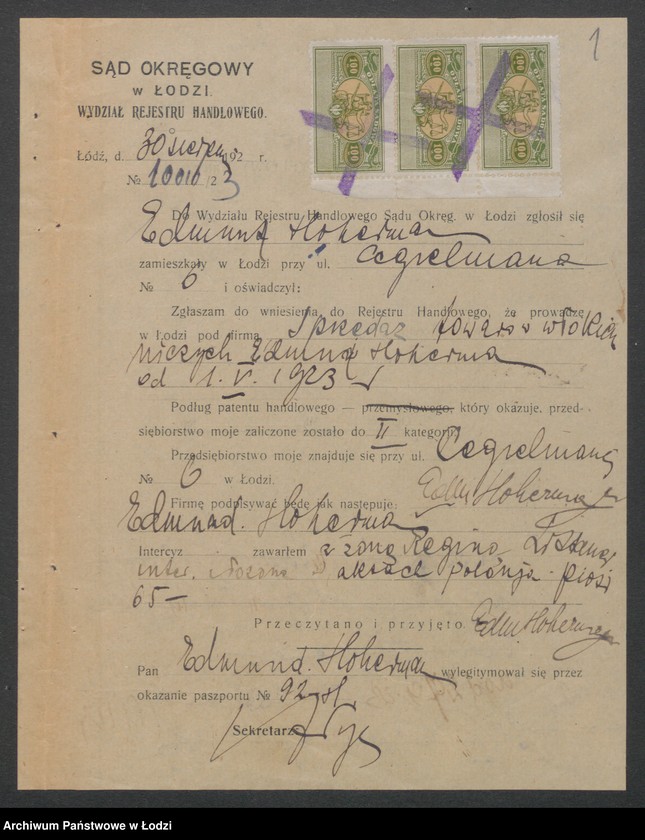 1
SĄD OKRĘGOWY
w ŁODZI.
WYDZIAŁ REJESTRU HANDLOWEGO.
Łódź, d. 30 sierpnia 192 r.
№ 10010/23
Do Wydziału Rejestru Handlowego Sądu Okręg. w Łodzi zgłosił się
Edmund Hoherman
zamieszkały w Łodzi przy ul. Cegielniana
№ 6 i oświadczył:
Zgłaszam do wniesienia do Rejestru Handlowego, że prowadzę
w Łodzi pod firmą Sprzedaż towarów włókien
niczych Edmund Hoherman
od 1. V. 1923 r
Podług patentu handlowego — przemysłowego, który okazuje, przed-
siębiorstwo moje zaliczone zostało do II kategorji.
Przedsiębiorstwo moje znajduje się przy ul. Cegielnianej
№ 6 w Łodzi.
Firmę podpisywać będę jak następuje: Edm Hoherman
Edmund. Hoherman
Intercyz zawarłem z żoną Reginą
inter. złożona w aktach
65 —
Przeczytano i przyjęto. Edm Hoherman
Pan Edmund. Hoherman, wylegitymował się przez
okazanie paszportu № 92
Sekretarz
100 100 100
100 100 100
Archiwum Państwowe w Łodzi